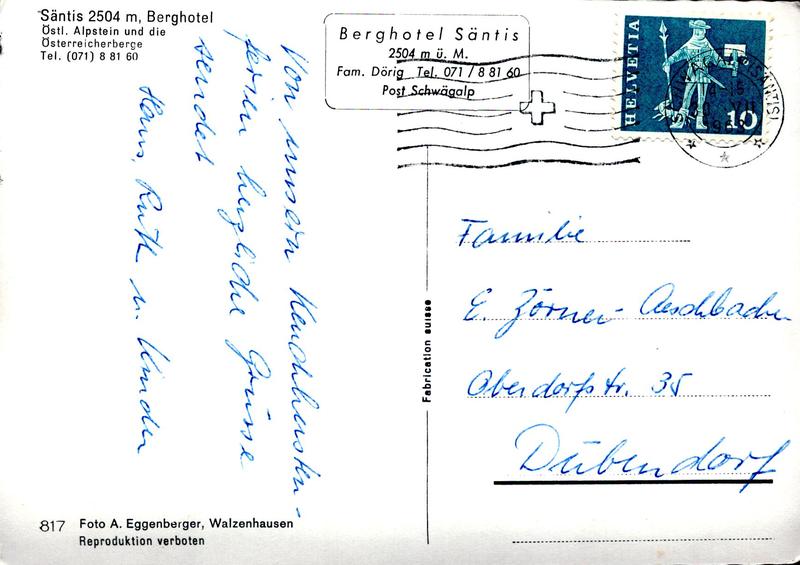 Säntis 2504 m, Berghotel
Östl. Alpstein und die
Österreicherberge
Tel. (071) 8 81 60
Berghotel Säntis
2504 m ü. M.
Fam. Dörig Tel. 071 / 8 81 60
Post Schwägalp
HELVETIA
10
(SÄNTIS)
Von unsern
ferien herzliche Grüsse
sendet
Hans, Ruth u. Kinder
Familie
E. Zörner-Aeschbacher
Oberdorfstr. 35
Dübendorf
Fabrication suisse
817 Foto A. Eggenberger, Walzenhausen
Reproduktion verboten